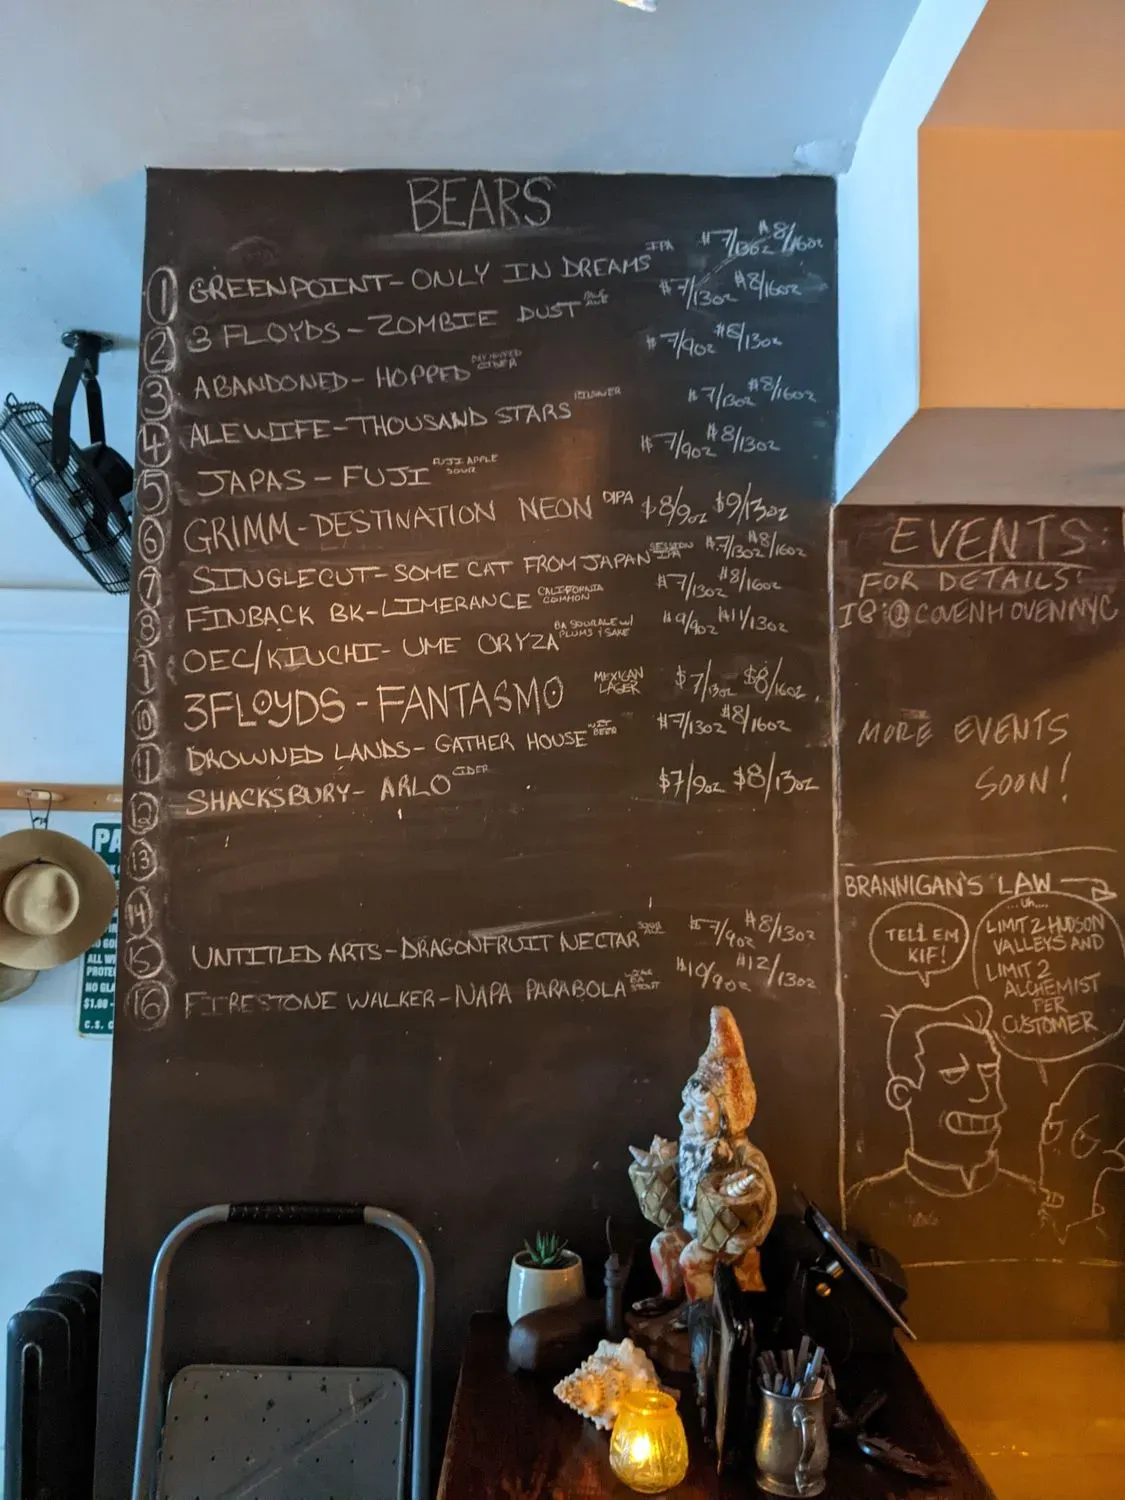 BEARS
1 GREENPOINT - ONLY IN DREAMS IPA $7/13oz $8/16oz
2 3 FLOYDS - ZOMBIE DUST PALE ALE $7/13oz $8/16oz
3 ABANDONED - HOPPED DRY HOPPED CIDER $7/9oz $8/13oz
4 ALEWIFE - THOUSAND STARS PILSNER $7/13oz $8/16oz
5 JAPAS - FUJI FUJI APPLE SOUR $7/9oz $8/13oz
6 GRIMM - DESTINATION NEON DIPA $8/9oz $9/13oz
7 SINGLECUT - SOME CAT FROM JAPAN SESSION IPA $7/13oz $8/16oz
8 FINBACK BK - LIMERANCE CALIFORNIA COMMON $7/13oz $8/16oz
9 OEC/KIUCHI - UME ORYZA BA SOUR ALE W/ PLUMS & SAKE $9/9oz $11/13oz
10 3FLOYDS - FANTASMO MEXICAN LAGER $7/13oz $8/16oz
11 DROWNED LANDS - GATHER HOUSE WET BEER $7/13oz $8/16oz
12 SHACKSBURY - ARLO CIDER $7/9oz $8/13oz
13
14
15 UNTITLED ARTS - DRAGONFRUIT NECTAR SOUR $7/9oz $8/13oz
16 FIRESTONE WALKER - NAPA PARABOLA BA STOUT $10/9oz $12/13oz
EVENTS
FOR DETAILS:
IG: @COVENHOVENNYC
MORE EVENTS
SOON!
BRANNIGAN'S LAW
TELL EM
KIF!
...Uh...
LIMIT 2 HUDSON
VALLEYS AND
LIMIT 2
ALCHEMIST
PER
CUSTOMER
PA
ALL W
PROTE
NO GLA
$1.00 -
C.S. C